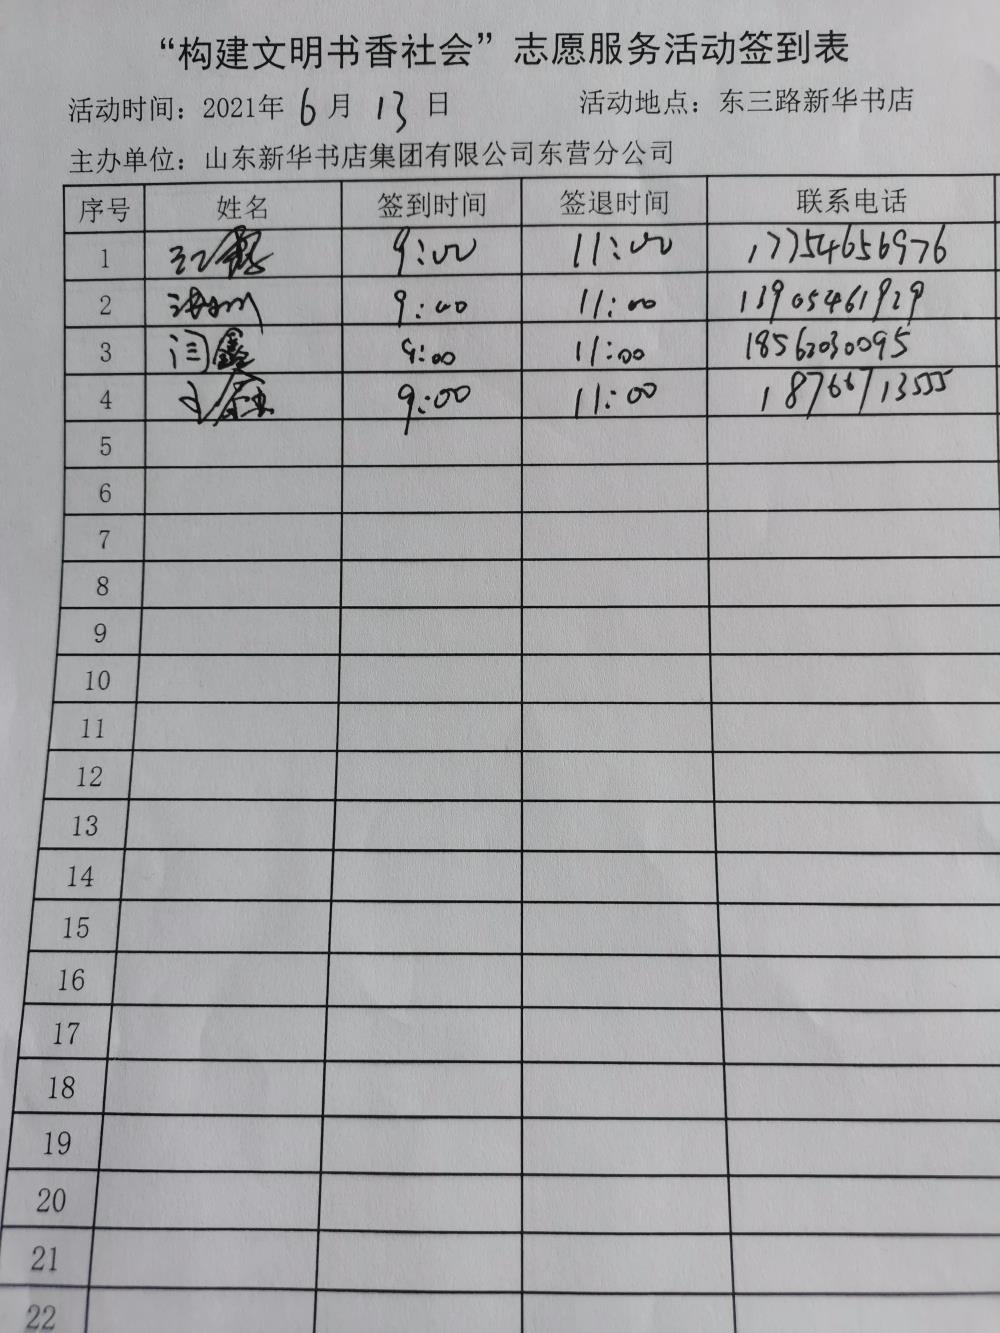 “构建文明书香社会”志愿服务活动签到表
活动时间：2021年 6 月 13 日 活动地点：东三路新华书店
主办单位：山东新华书店集团有限公司东营分公司
序号 姓名 签到时间 签退时间 联系电话
1 9:00 11:00 17754656976
2 9:00 11:00 13905461929
3 闫鑫 9:00 11:00 18562030095
4 9:00 11:00 18766713555
5
6
7
8
9
10
11
12
13
14
15
16
17
18
19
20
21
22